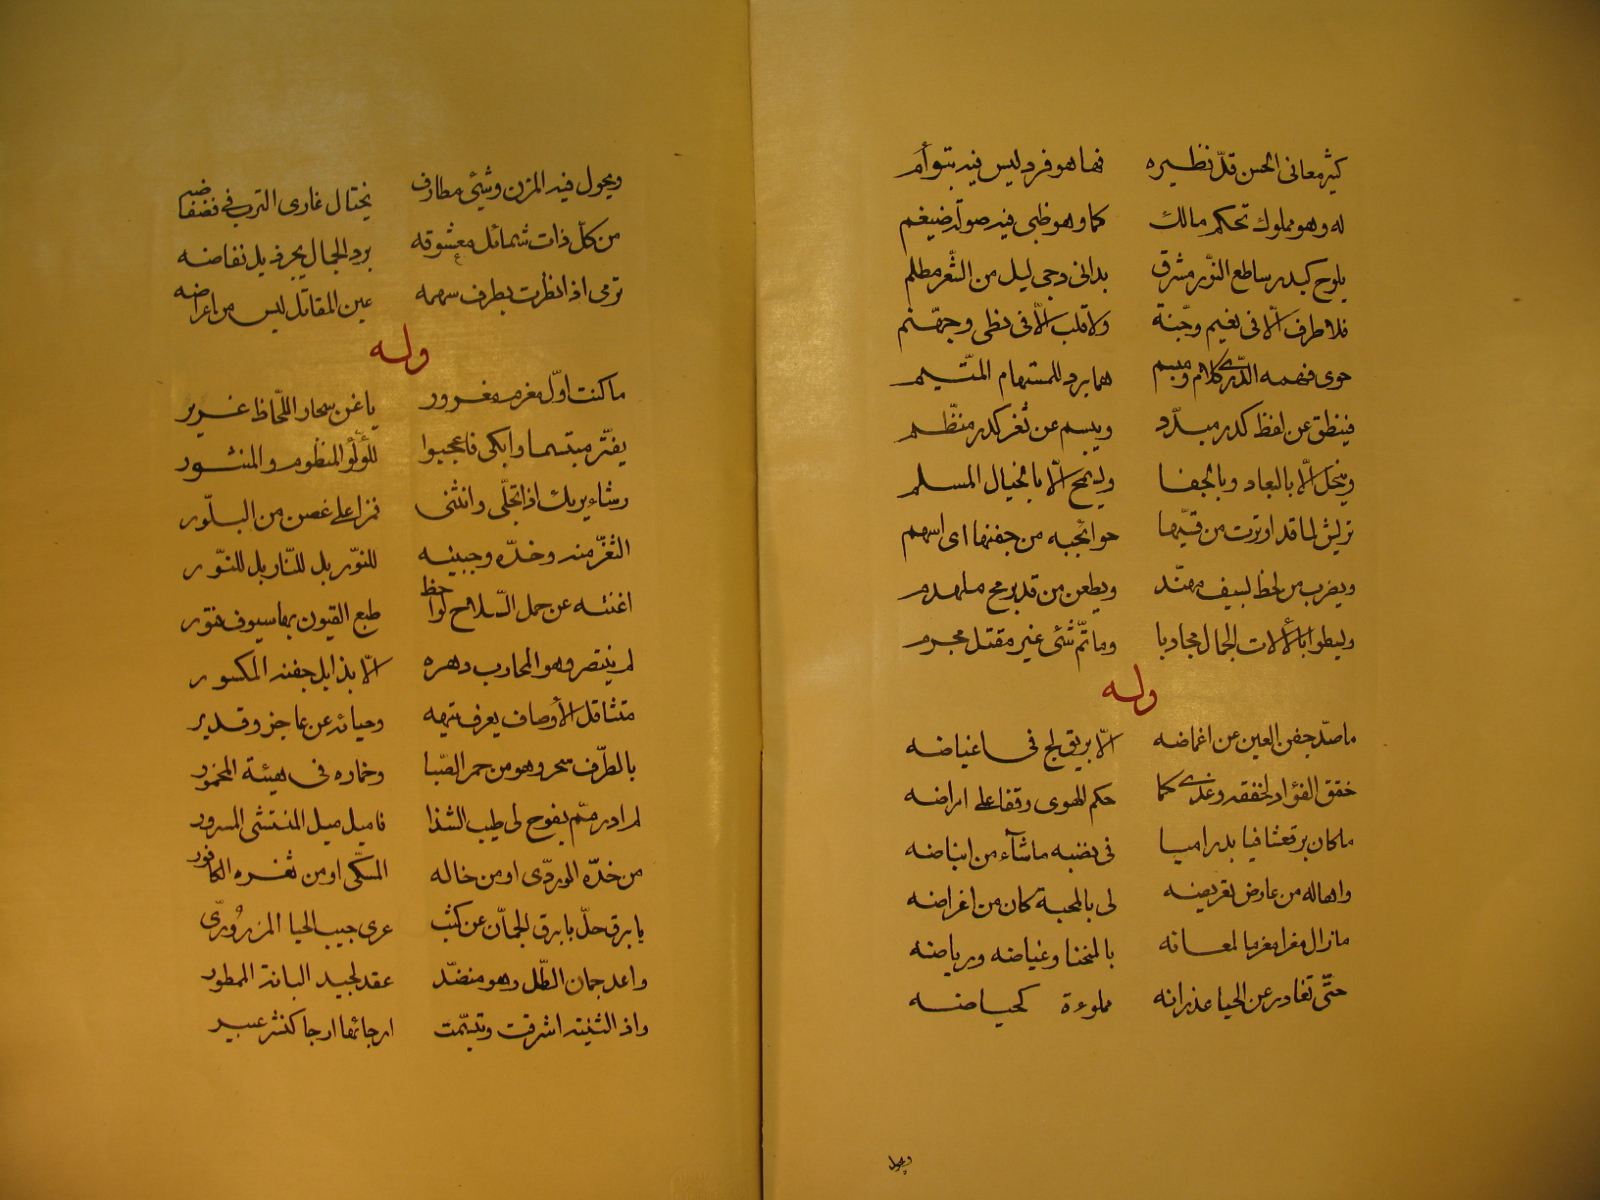 كثير معانى الحسن قلّ نظيره فها هو فرد ليس فيه بتوأم
له وهو مملوك تحكم مالك كما وهو ظبى فيه صولة ضيغم
يلوح كبدر ساطع النّور مشرق بدا فى دجى ليل من الشّعر مظلم
فلا طرف الّا فى نعيم وجّنة ولا قلب الّا فى لظى وجهّنم
حوى فمه الدّرى كلام ومبسم هما برد للمستهام المتّيم
فينطق عن لفظ كدر مبدّد ويبسم عن ثغر كدر منظّم
ويبخل الّا بالبعاد وبالجفا ولم يسمح الّا بالخيال المسلم
تريش لما قد اوترت من قسيّها حواجبه من جفنها اى اسهم
ويضرب من لحظ بسيف مهنّد ويطعن من قد برمح ملهدم
وليطوا بألالات الجمال محاربا وماثمّ شئ غير مقتل مجرم
وله
ماصدّ جفن العين عن اغماضه الّا بريق لج فى اغياضه
خفق الفؤاد لخفقه وغدى كما حكم الهوى وقفا على امراضه
ما كان برقعشافيا بدراميا فى نضبه ماشآء من انباضه
واهاله من عارض تعريضه لى بالمحبة كان من اغراضه
مازال مغرا مغرما لمعانه بالمنحنا وغياضه ورياضه
حتّى تغادر عن الحيا غدرانه مملوءة كحياضه
ويجول
ويجول فيه المزن وشئ مطارف يختال غارى الترب فى فضفاضه
من كلّ ذات شمائل معشوقه برد الجمال يجر ذيل نفاضه
ترمى اذا نظرت بطرف سهمه عين المقاتل ليس من اغراضه
وله
ما كنت اوّل مغرم مغرور ياغن سحار اللّحاظ غرير
يفتّر مبتسما وابكى فاعجبوا للؤلؤ المنظوم والمنثور
رشاء يريك اذا تجلّى وانثنى قمرا على غصن من البلّور
الثغر منه وخدّه وجبينه للنوّر بل للنّار بل للنّور
اغنته عن حمل السّلاح لواحظ طبع القيون بها سيوف فتور
لم ينتصر وهو المحارب دهره الّا بذابل جفنه المكسور
متثاقل الأوصاف يعرف بتهه وحيائه عن عاجز وقدير
بالطّرف سحر وهو من خمر الصّبا وخماره فى هيئة المخمور
لم ادر ممّ يفوح لى طيب الشذا فاميل ميل المنتشى المسرور
من خدّه الوردّى او من خاله المسكّى او من ثغره الكافور
يا برق حلّ بابرق الجمّان عن كثب عرى جيب الحيا المزرور
واعد جمان الطّل وهو منضّد عقد لجيد البانة الممطور
واذ الثنيته اشرقت وتبسّمت ارجائها ارجا كنشر عبير